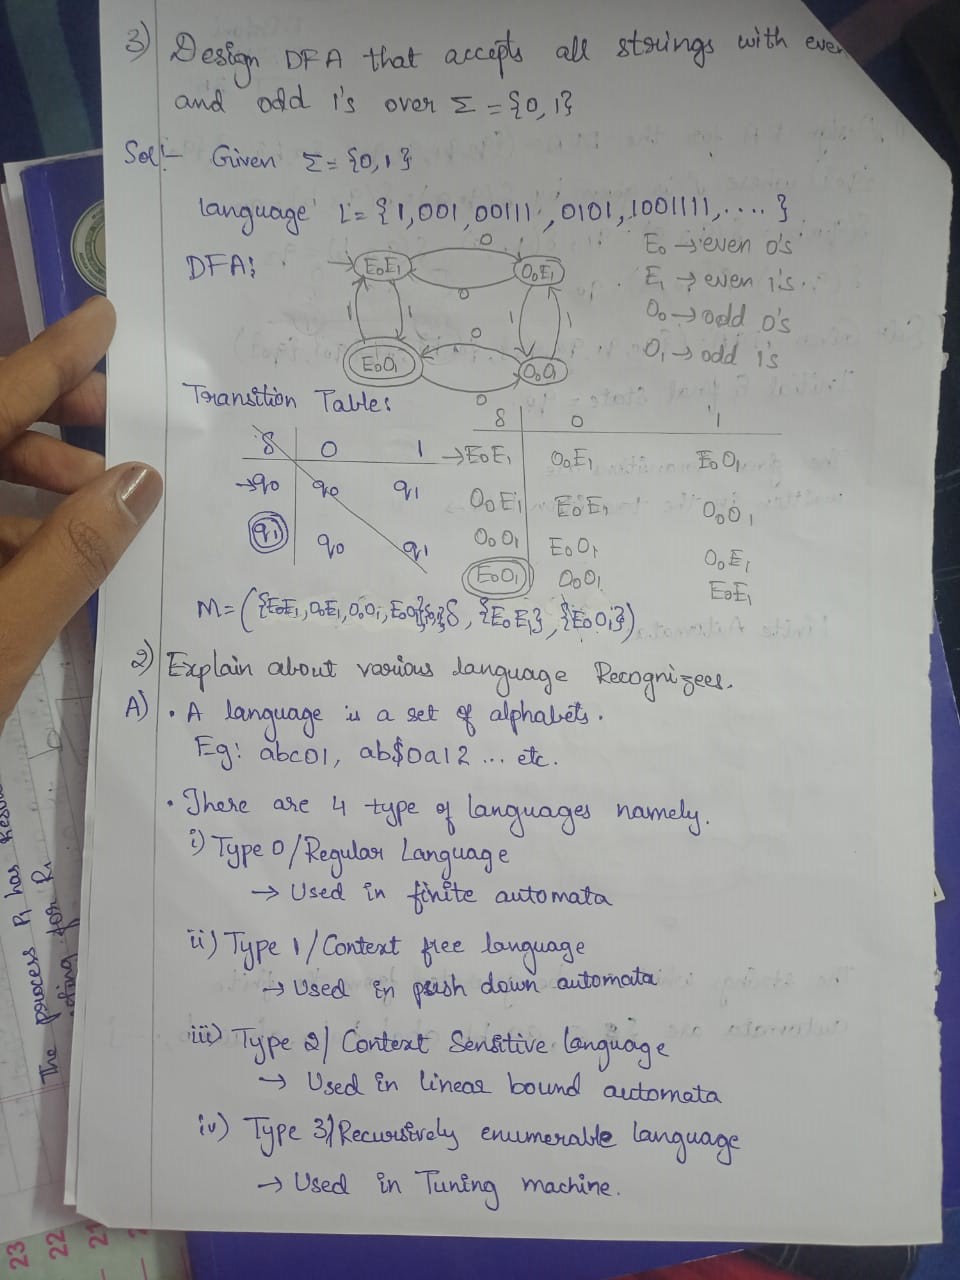 3) Design DFA that accepts all strings with even
and odd 1's over Σ = {0,1}
Sol:- Given Σ = {0,1}
language L = {1,001,00111,0101,1001111,....}
E₀ → even 0's
E₁ → even 1's.
O₀ → odd 0's
O₁ → odd 1's
DFA:
0
E₀E₁ O₀E₁
0
1 1 1 1
0
E₀O₁ O₀O₁
0
Transition Table:
δ 0 1
→q0 q0 q1
q1 q0 q1
δ 0 1
→E₀E₁ O₀E₁ E₀O₁
O₀E₁ E₀E₁ O₀O₁
O₀O₁ E₀O₁ O₀E₁
E₀O₁ O₀O₁ E₀E₁
M = ({E₀E₁, O₀E₁, O₀O₁, E₀O₁} δ, {E₀E₁}, {E₀O₁})
2) Explain about various language Recognizees.
A) • A language is a set of alphabets.
Eg: abc01, ab$0a12 ... etc.
• There are 4 type of languages namely.
i) Type 0/Regular Language
→ Used in finite automata
ii) Type 1/Context free language
→ Used in push down automata
iii) Type 2/ Context Sensitive language
→ Used in linear bound automata
iv) Type 3/Recursively enumerable language
→ Used in Tuning machine.
The process P₁ has
for R₁
23
22
21